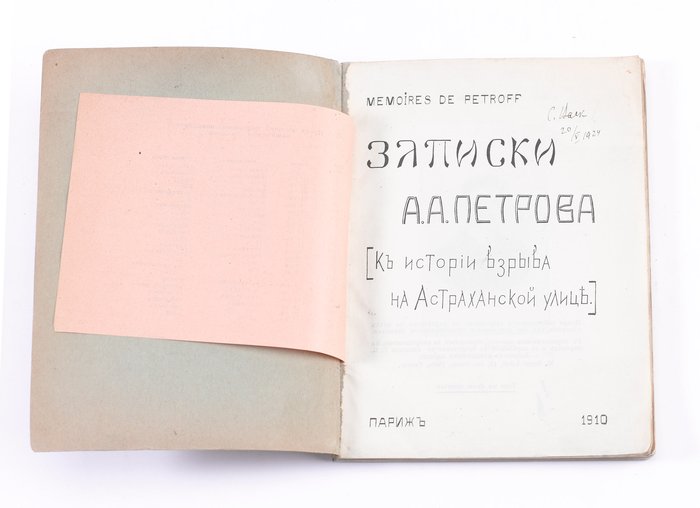 MEMOIRES DE PETROFF
С. Валк
20/V 1924
ЗАПИСКИ
А.А.ПЕТРОВА
[Къ исторіи взрыва
на Астраханской улицѣ.]
ПАРИЖЪ 1910